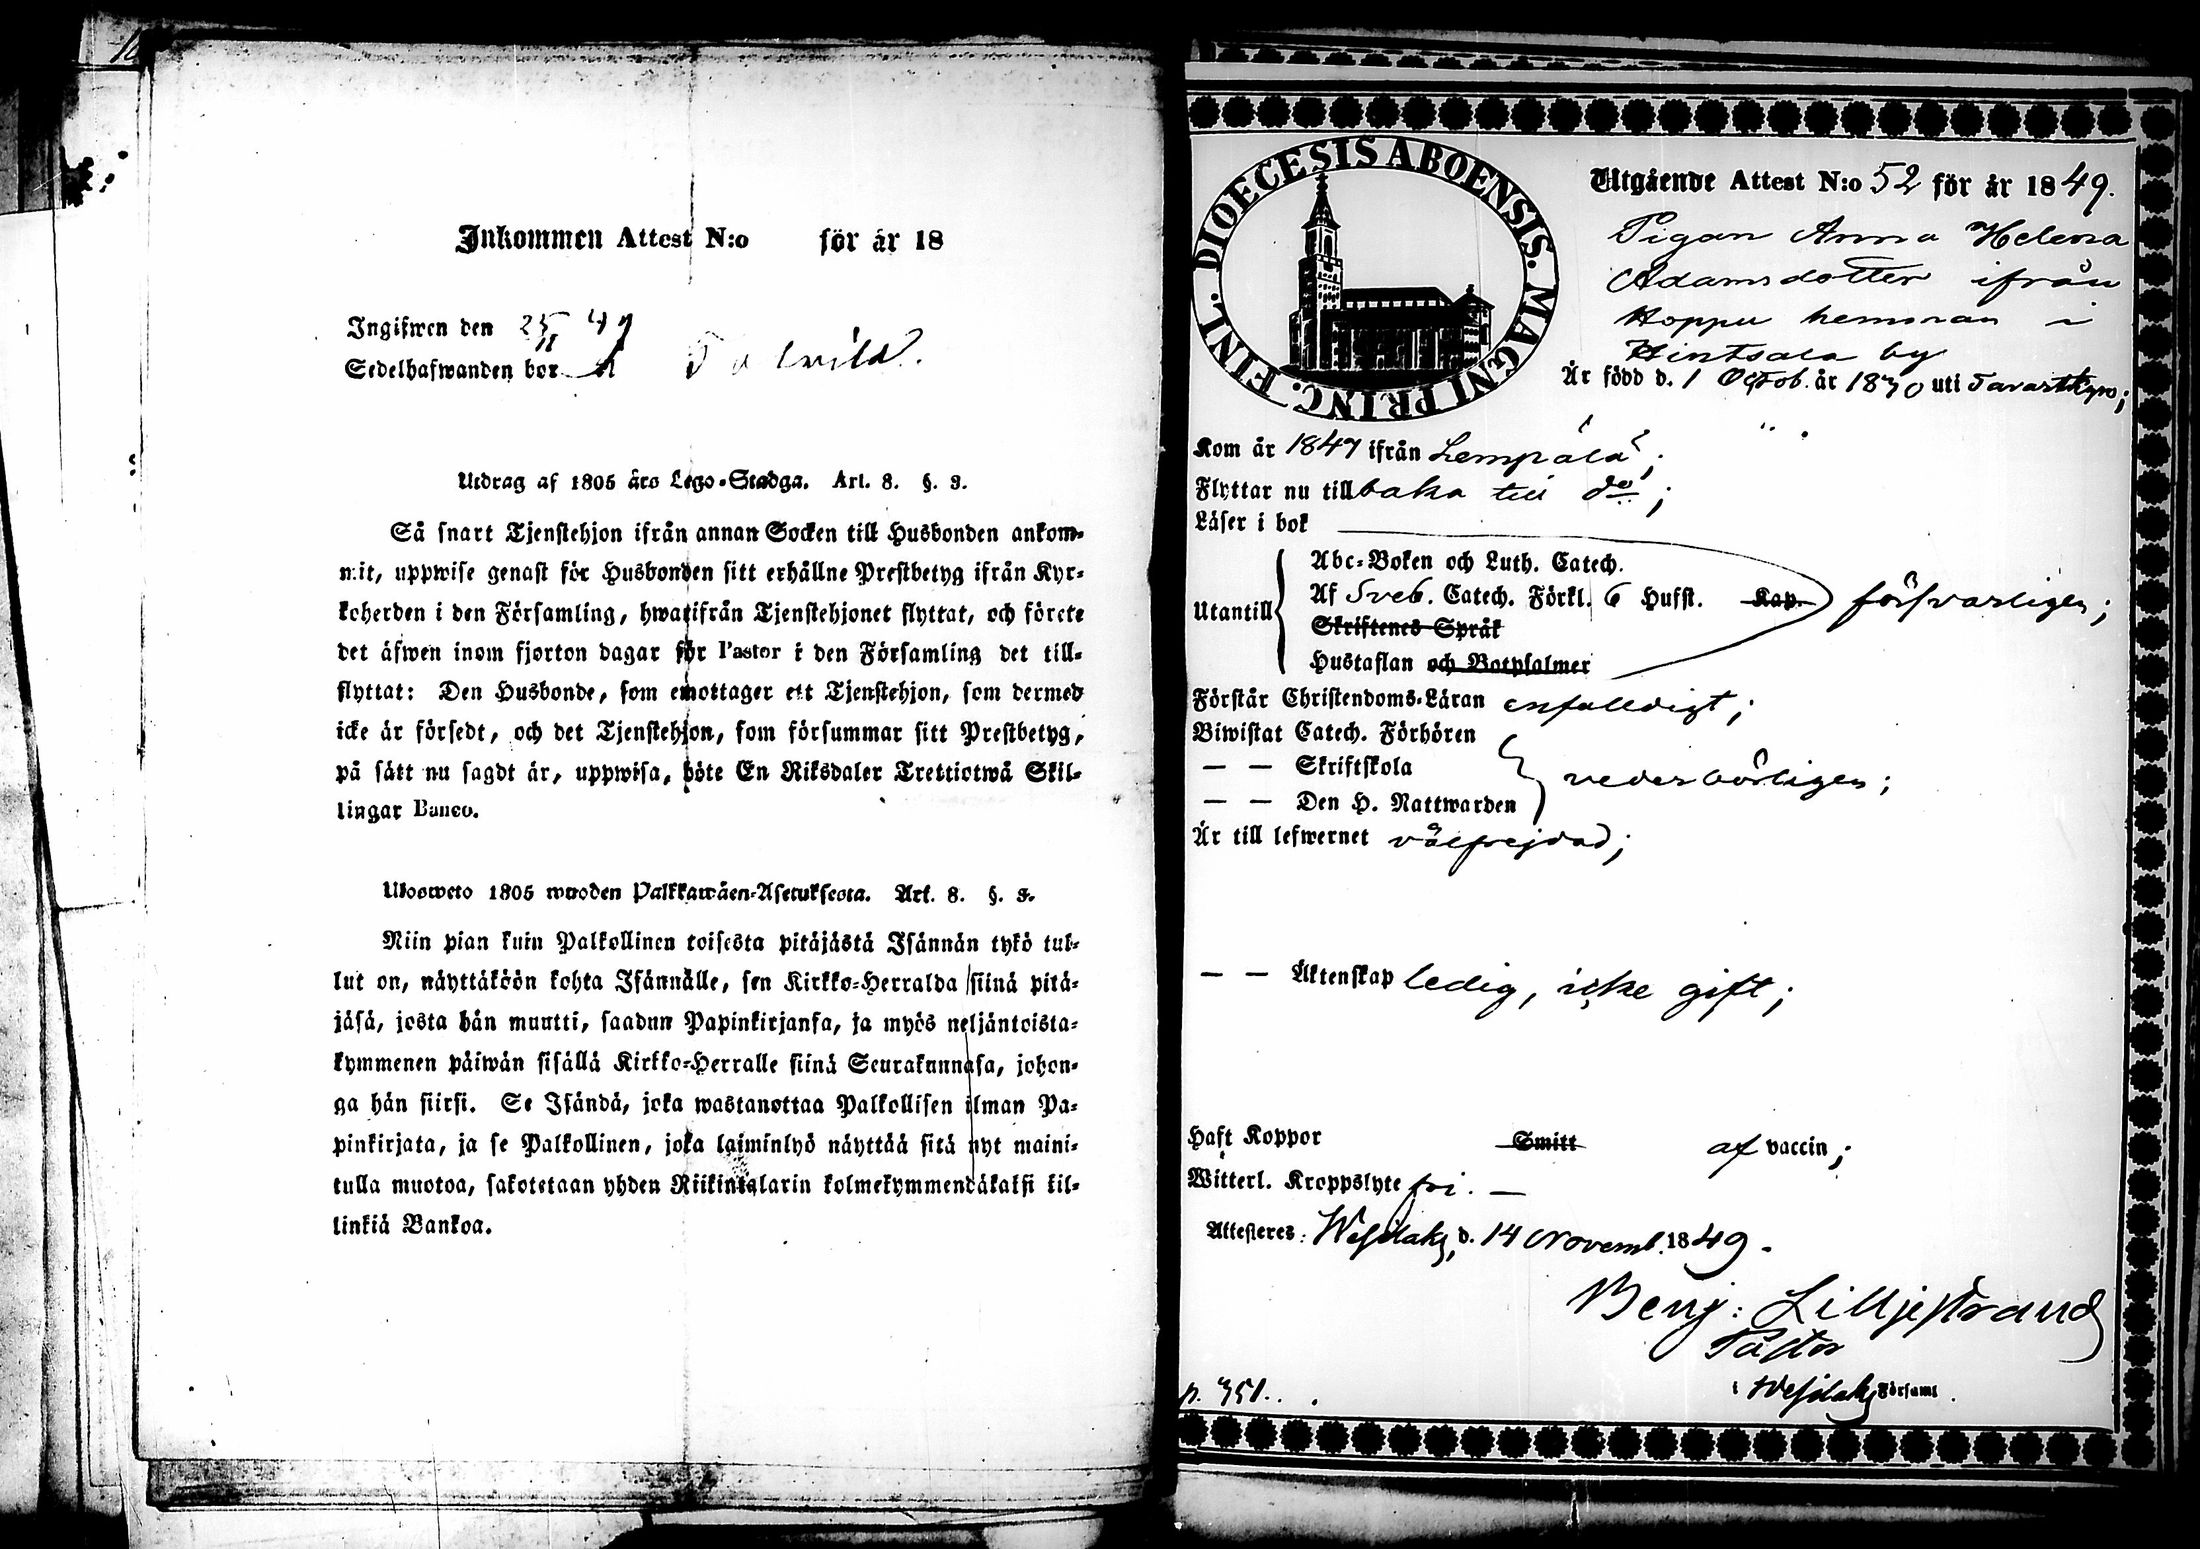 Inkommen Attest N:o för år 18
Ingifwen den 25/11 49
Sedelhafwanden bor
Utdrag af 1805 års Lego-Stadga. Art. 8. §. 3.
Så snart Tjenstehjon ifrån annan Socken till Husbonden ankom-
mit, uppwise genast för Husbonden sitt erhållne Prestbetyg ifrån Kyr-
koherden i den Församling, hwarifrån Tjenstehjonet flyttat, och förete
det äfwen inom fjorton dagar för Pastor i den Församling det till-
flyttat: Den Husbonde, som emottager ett Tjenstehjon, som dermed
icke är försedt, och det Tjenstehjon, som försummar sitt Prestbetyg,
på sätt nu sagdt är, uppwisa, böte En Riksdaler Trettiotwå Skil-
lingar Banco.
Ulosweto 1805 wuoden Palkkawäen-Asetuksesta. Art. 8. §. 3.
Niin pian kuin Palkollinen toisesta pitäjästä Isännän tykö tul-
lut on, näyttäköön kohta Isännälle, sen Kirkko-Herralda siinä pitä-
jäsä, josta hän muutti, saadun Papinkirjansa, ja myös neljäntoista-
kymmenen päiwän sisällä Kirkko-Herralle siinä Seurakunnasa, johon-
ga hän siirsi. Se Isändä, joka wastanottaa Palkollisen ilman Pa-
pinkirjata, ja se Palkollinen, joka laiminlyö näyttää sitä nyt maini-
tulla muotoa, sakotetaan yhden Riikintalarin kolmekymmendäkaksi kil-
linkiä Bankoa.
DIOECESIS ABOENSIS. MAGNI PRINC. FINL.
Utgående Attest N:o 52 för år 1849.
Pigan Anna Helena
Adamsdotter ifrån
Hoppu hemman i
Hintsala by
Är född d. 1 Octob. år 1830 uti Tavastkyro;
Kom år 1847 ifrån Lempälä;
Flyttar nu tillbaka till do;
Läser i bok
Abc-Boken och Luth. Catech.
Utantill Af Sveb. Catech. Förkl. 6 Hufst. Kap. försvarligen;
Skriftenes Språk
Hustaflan och Botpsalmer
Förstår Christendoms-Läran enfalldigt;
Biwistat Catech. Förhören
— — Skriftskola vederbörligen;
— — Den H. Nattwarden
Är till lefwernet välfrejdad;
— — Äktenskap ledig, icke gift;
Haft Koppor Smitt af vaccin;
Witterl. Kroppslyte fri. —
Attesteres: Wesilaks, d. 14 Novemb. 1849.
Benj: Lilljestrand
Pastor
i Wesilaks Församl.
p. 351.